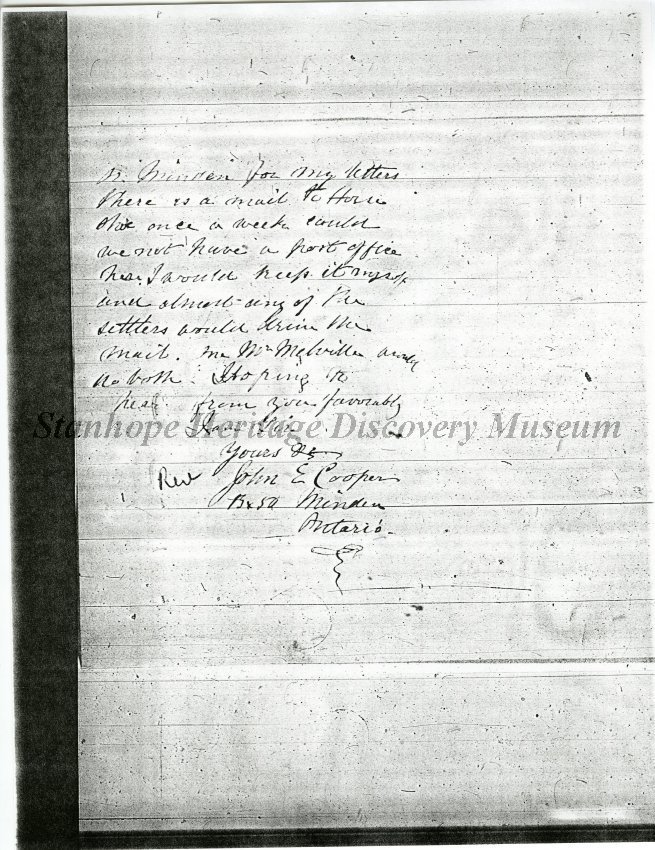 Minden for my letters
There is a mail to
once a week could
we not have a post office
here. I would keep it myself
and almost any of the
settlers would drive the
mail. Mr Melville
both. Hoping to
hear from you favorably
Stanhope Heritage Discovery Museum
Yours
Rev John E Cooper
Box 50 Minden
Ontario.